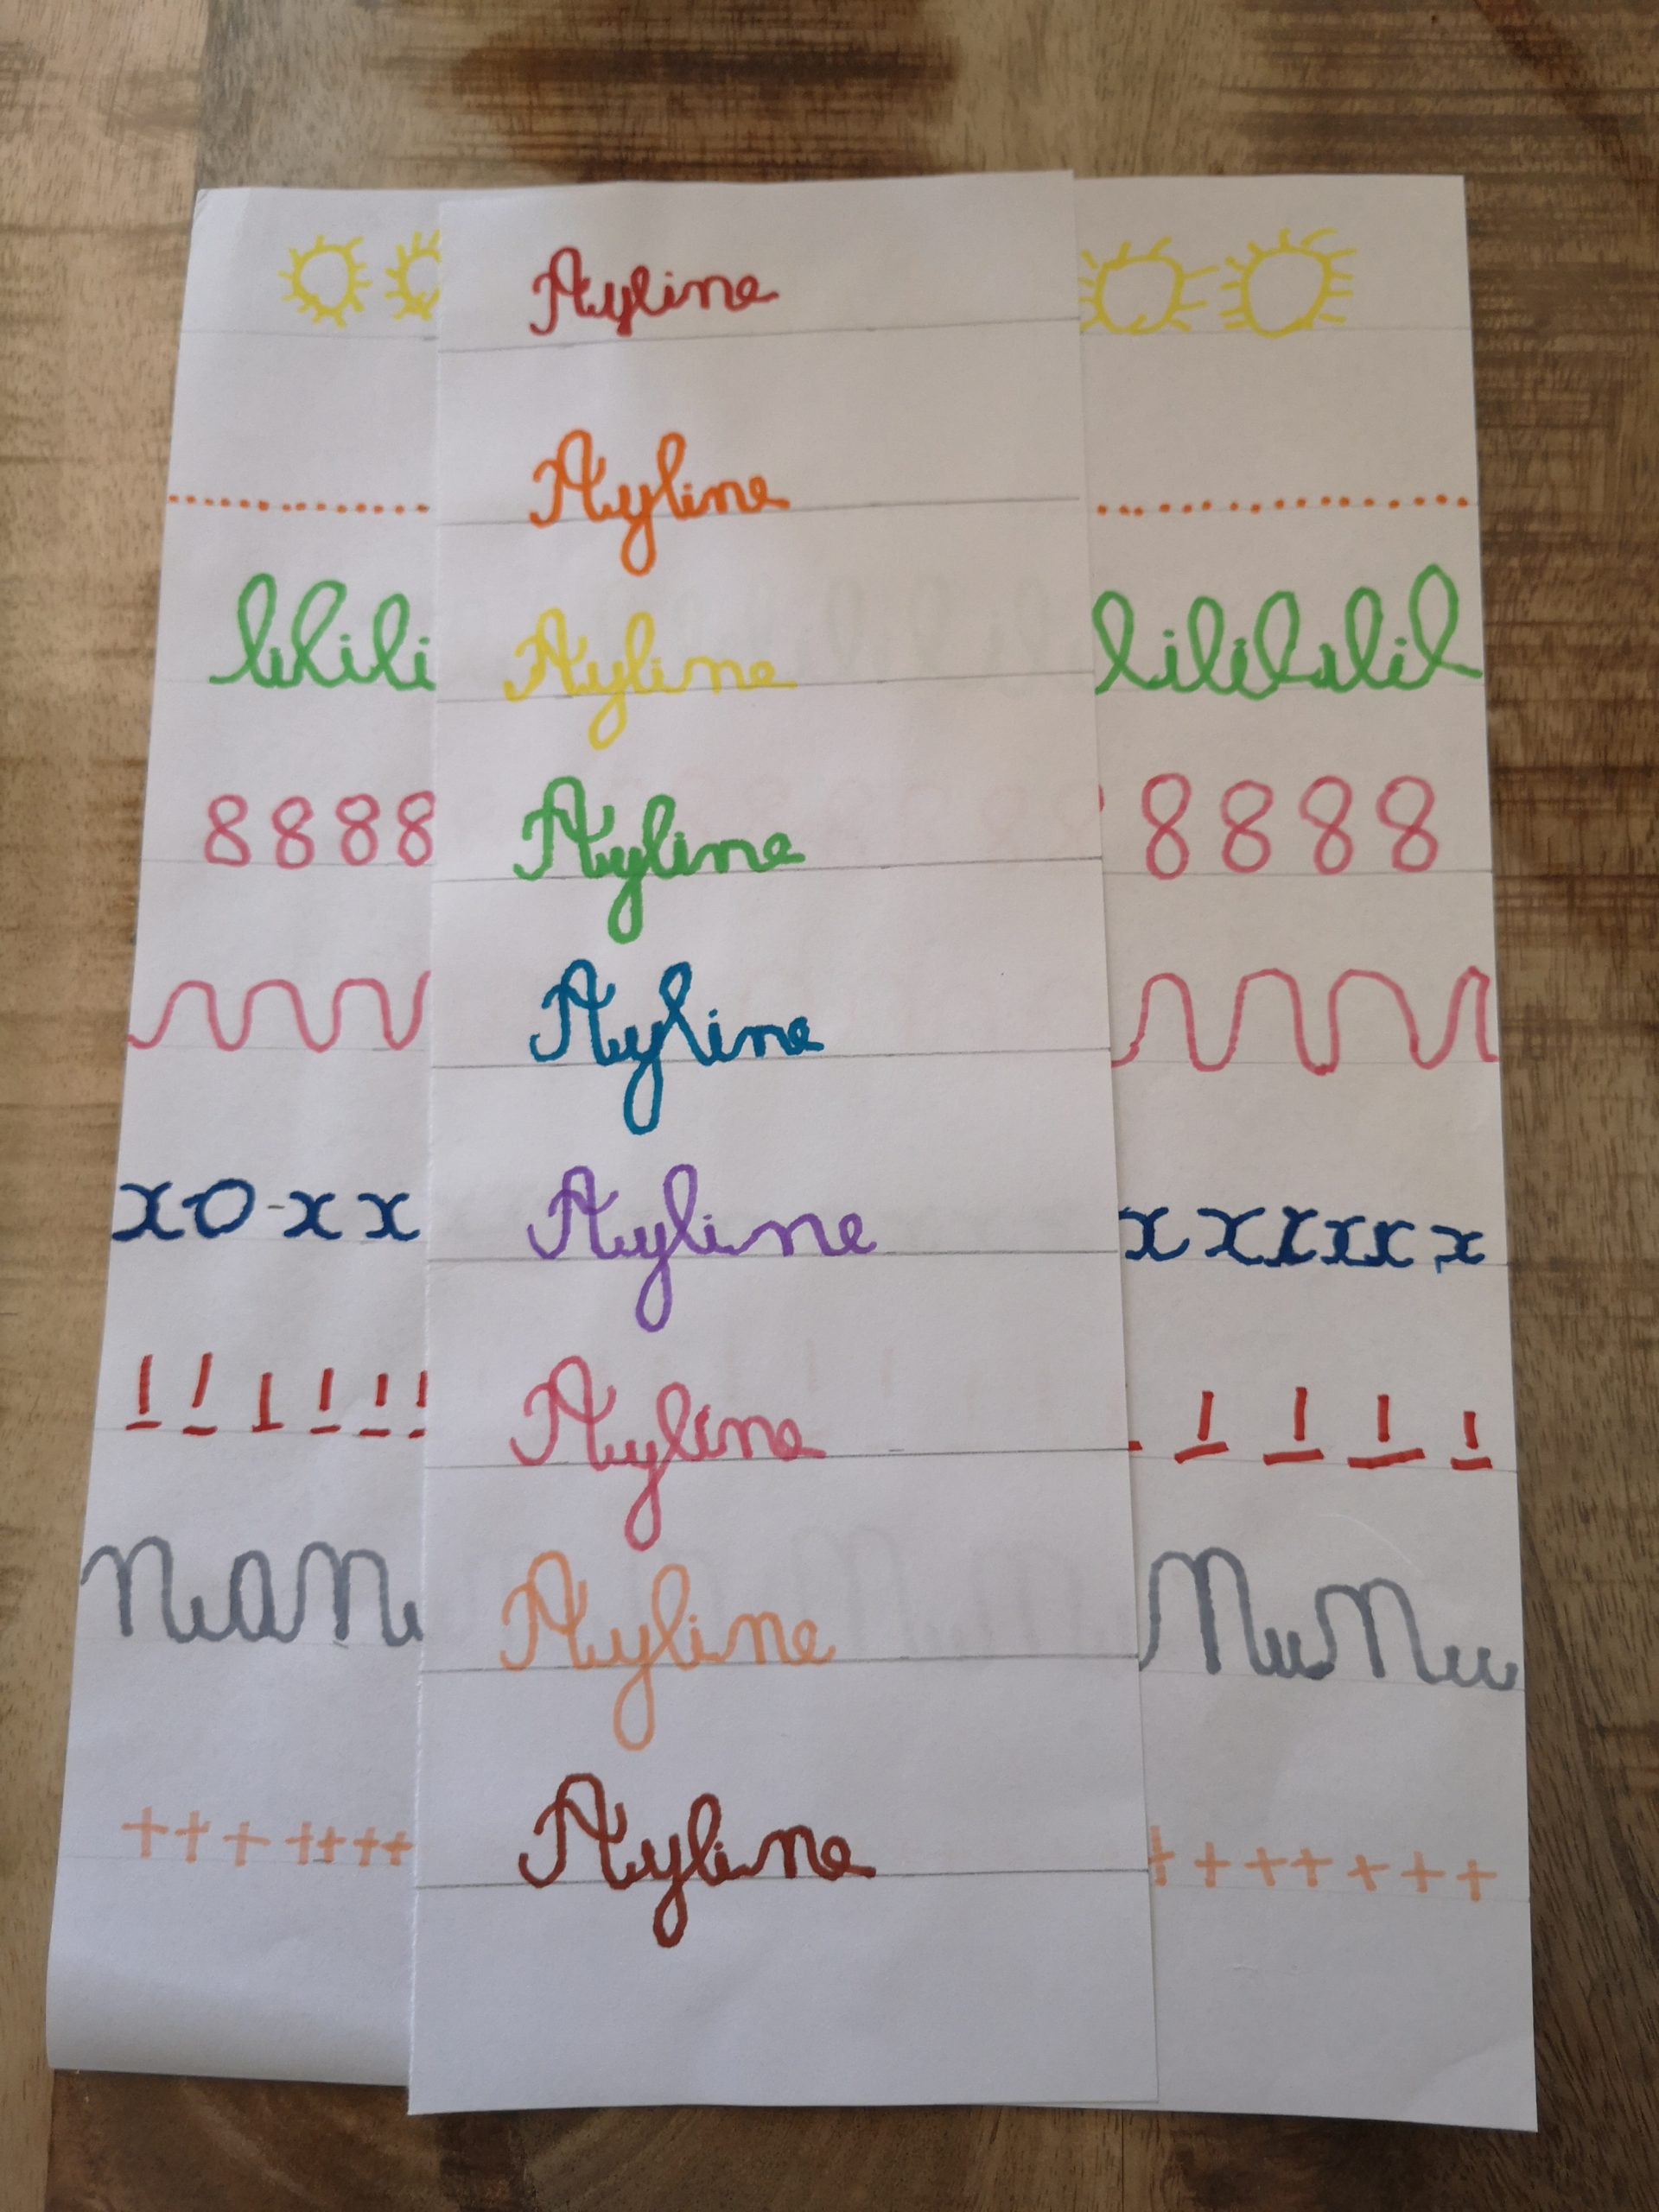 Ayline
Ayline
lilili Ayline lilililili
8888 Ayline 8888
Ayline
xo-xx Ayline xxxxxx
Ayline
Ayline
+++++++ Ayline +++++++